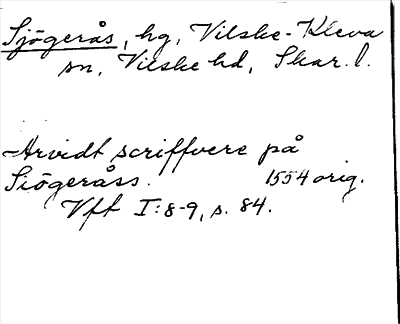 Sjögerås, hg, Vilske-Kleva
sn, Vilske hd, Skar. l.
Arvidt scriffvere på
Siögeråss. 1554 orig.
Vft I:8-9, s. 84.